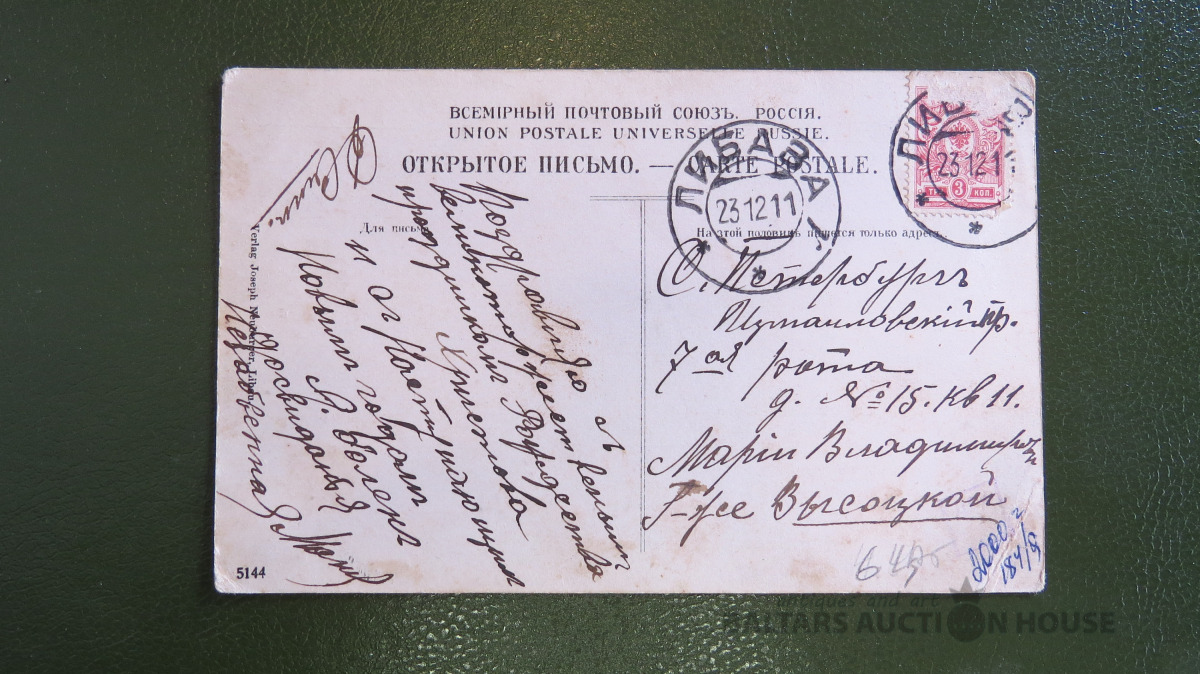 ВСЕМІРНЫЙ ПОЧТОВЫЙ СОЮЗЪ. РОССІЯ.
UNION POSTALE UNIVERSELLE RUSSIE.
ОТКРЫТОЕ ПИСЬМО. — CARTE POSTALE.
Для письма
На этой половинѣ пишется только адресъ.
ЛИБАВА
23 12 11
ЛИБ
23 12 1
3
КОП.
С. Петербургъ
Измаиловскій пр.
7ая рота
д. № 15. кв 11.
Маріи Владимировнѣ
Г-жѣ Высоцкой
Поздровляю съ
праздникомъ Рождества
Христова
и съ Наступающимъ
Новымъ годомъ
досвиданья
Verlag Joseph Neuberger, Libau
5144
2000
184/9
antiques and art
BALTARS AUCTION HOUSE